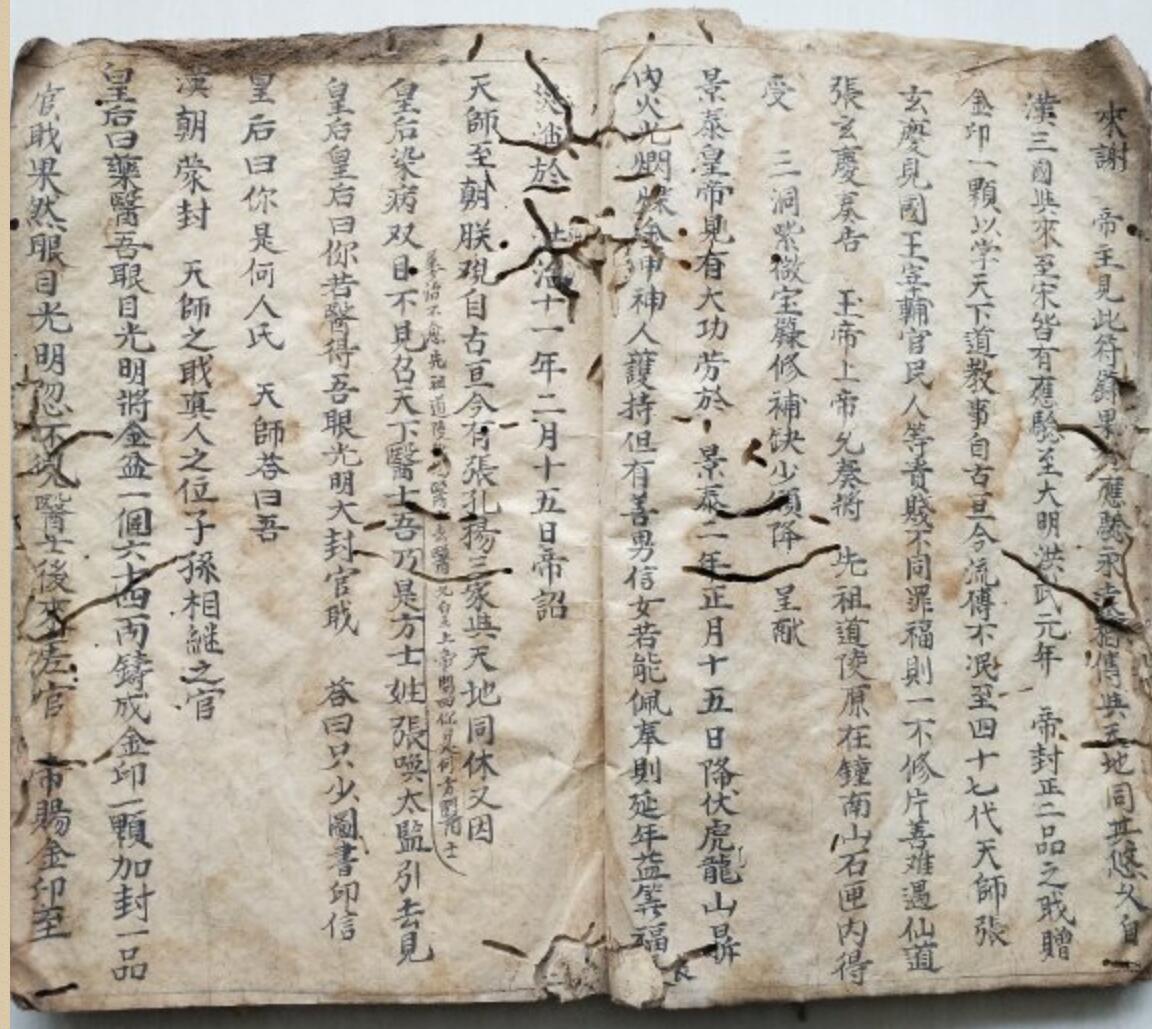 來謝　帝主見此符籙果應驗永遠箱傳與天地同其悠久自
漢三國與來至宋皆有應驗至大明洪武元年　帝封正二品之戝贈
金印一顆以学天下道教事自古亘今流傳不泯至四十七代天師張
玄慶見國王宰輔官民人等貴賤不同罪福則一不修片善难遇仙道
張玄慶奏告　玉帝上帝允奏將　先祖道陵原在鐘南山石匣内得
受　三洞紫微宝籙修補缺少須降　呈献
景泰皇帝見有大功劳於　景泰二年正月十五日降伏虎龍山
内火光神人護持但有善男信女若能佩奉則延年益筭福
於　治十一年二月十五日帝詔
天師至朝朕观自古亘今有張孔揚三家與天地同休又因
皇后染病双目不見召天下醫士吾乃是方士姓張喚太監引去見
皇后皇后曰你若醫得吾眼光明大封官戝　答曰只少圖書印信
皇后曰你是何人氏　天師答曰吾
漢朝荣封　天師之戝真人之位子孫相継之官
皇后曰藥醫吾眼目光明將金盆一個六十四両鑄成金印一顆加封一品
官戝果然眼目光明忽不見醫士後來官　帝賜金印至